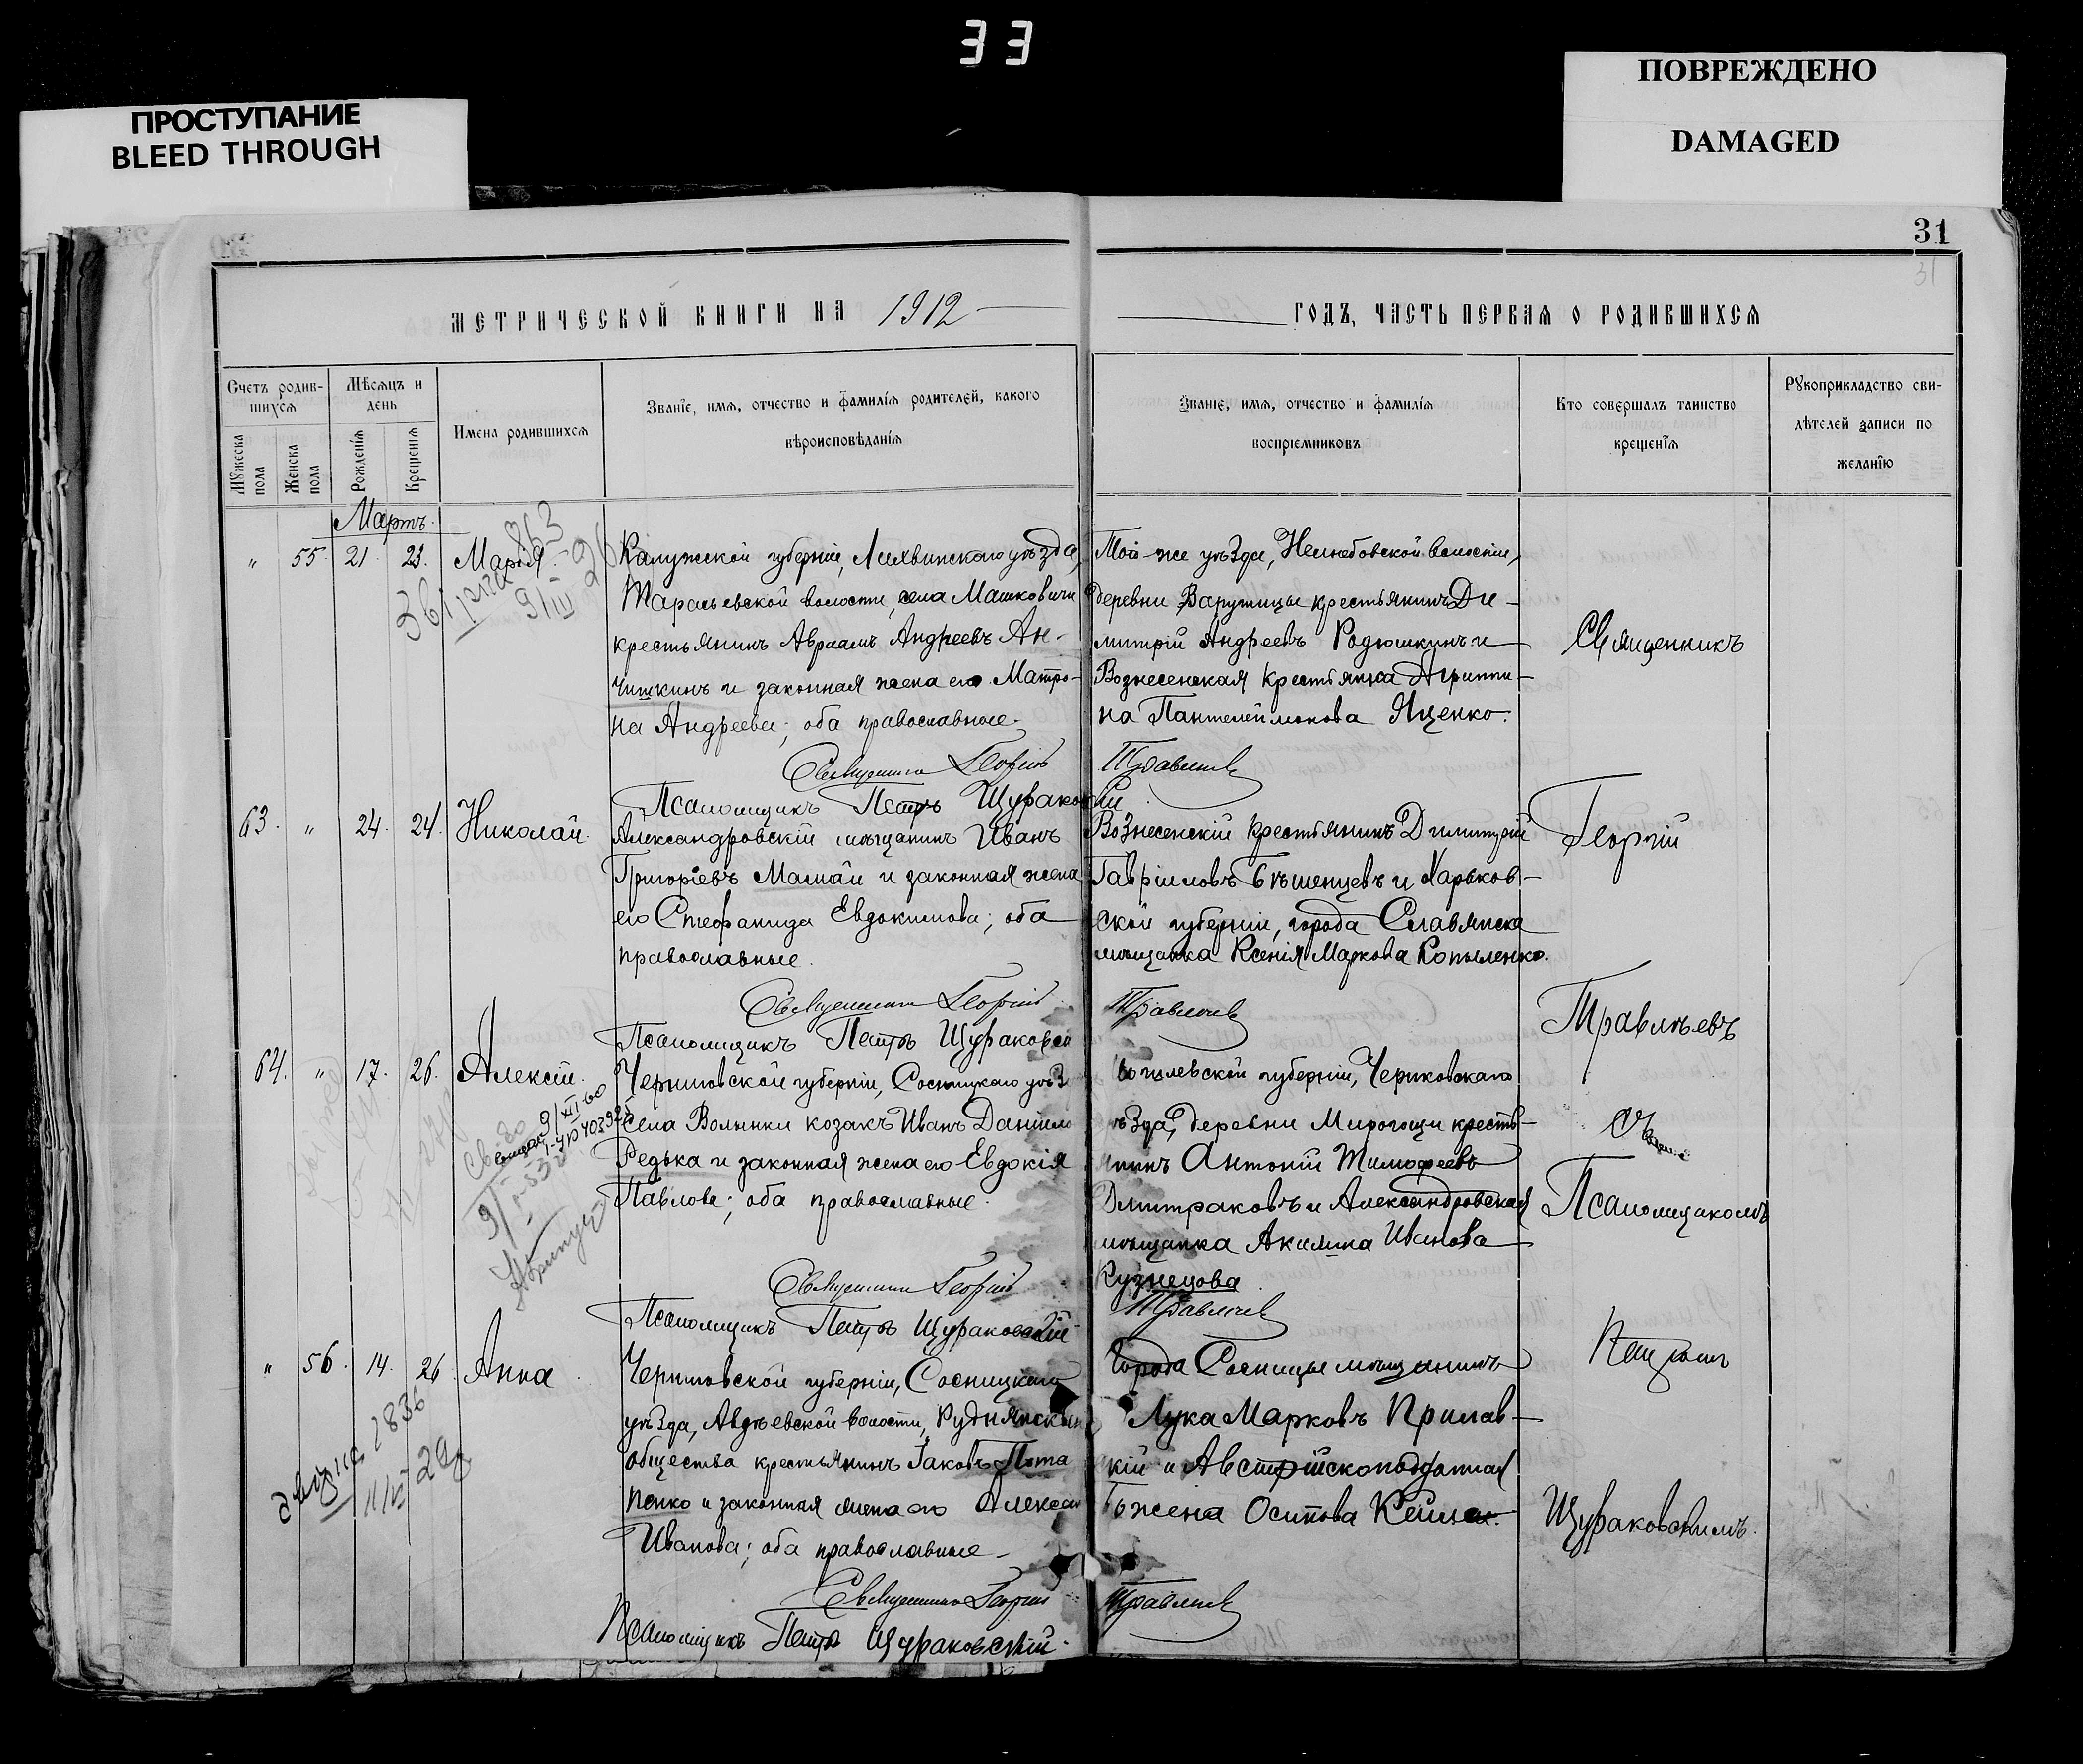 33
ПРОСТУПАНИЕ
BLEED THROUGH
ПОВРЕЖДЕНО
DAMAGED
31
31
МЕТРИЧЕСКОЙ КНИГИ НА 1912
ГОДЪ, ЧАСТЬ ПЕРВАЯ О РОДИВШИХСЯ
Счетъ родив-
шихся
Мѣсяцъ и
день
Мужеска
пола
Женска
пола
Рожденія
Крещенія
Имена родившихся
Званіе, имя, отчество и фамилія родителей, какого
вѣроисповѣданія
Званіе, имя, отчество и фамилія
воспріемниковъ
Кто совершалъ таинство
крещенія
Рукоприкладство сви-
дѣтелей записи по
желанію
Мартъ.
" 55. 21. 23. Марія.
Калужской губерніи, Лихвинскаго уѣзда,
Тарасьевской волости, села Машковичи
крестьянинъ Авраамъ Андреевъ Ан-
чишкинъ и законная жена его Матро-
на Андреева; оба православные.
Священникъ Георгій
Псаломщикъ Петръ Щураковскій
Того-же уѣзда, волости,
деревни Варушицы крестьянинъ Ди-
митрій Андреевъ Родюшкинъ и
Вознесенская крестьянка Агриппи-
на Пантелеймонова Яценко.
Травлѣевъ
63. " 24. 24. Николай.
Александровскій мѣщанинъ Иванъ
Григоріевъ Мамай и законная жена
его Стефанида Евдокимова; оба
православные.
Священникъ Георгій
Псаломщикъ Петръ Щураковскій
Вознесенскій крестьянинъ Димитрій
Гавріиловъ Бѣшенцевъ и Харьков-
ской губерніи, города Славянска
мѣщанка Ксенія Маркова Копыленко.
Травлѣевъ
64. " 17. 26. Алексій.
Черниговской губерніи, Сосницкаго уѣз
села Волынки козакъ Иванъ Даниило
Редька и законная жена его Евдокія
Павлова; оба православные.
Священникъ Георгій
Псаломщикъ Петръ Щураковскій
огилевской губерніи, Чериковскаго
ѣзда, деревни Мирогощи кресть-
янинъ Антоній Тимофеевъ
Дмитраковъ и Александровская
мѣщанка Акилина Иванова
Кузнецова
Травлѣевъ
" 56. 14. 26. Анна.
Черниговской губерніи, Сосницкаго
уѣзда, Авдѣевской волости, Руднянскаго
общества крестьянинъ Іаковъ Пота
пенко и законная жена его Алексан
Иванова; оба православные.
Священникъ Георгій
Псаломщикъ Петръ Щураковскій.
Города Сосницы мѣщанинъ
Лука Марковъ Прилав-
скій и Австрійскоподданная
Божена Осипова
Травлѣевъ
Священникъ
Георгій
Травлѣевъ
съ
Псаломщикомъ
Петромъ
Щураковскимъ.